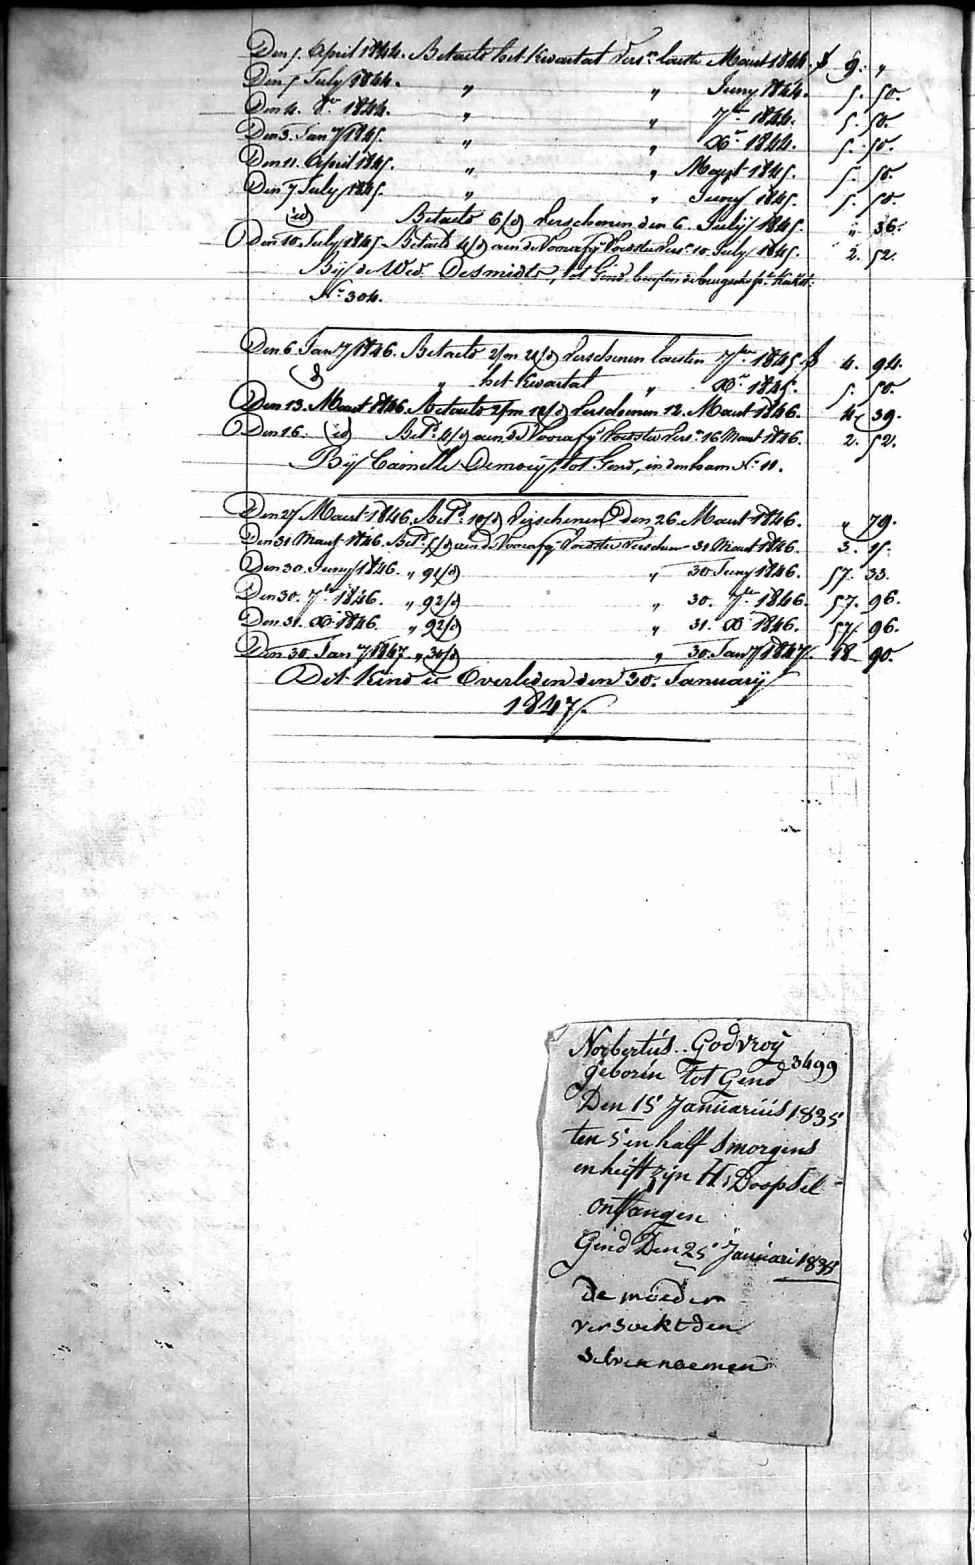 Den 5. April 1844. Betaelt het kwartal Vers.n laeste Maert 1844. f 9. „
Den 5 July 1844. „ „ Juny 1844. 5. 50.
Den 4. 8.re 1844. „ „ 7.bre 1844. 5. 50.
Den 3. Jan.y 1845. „ „ X.re 1844. 5. 50.
Den 11. April 1845. „ „ Maert 1845. 5. 50.
Den 7 July 1845. „ „ Juny 1845. 5. 50.
(id) Betaelt 6/d Verschenen den 6. July 1845. „ 36.
Den 10. July 1845. Betaelt 4/d aen de Voorafg. Voedster Vers.n 10 July 1845. 2. 52.
Bij de Wed. Desmidts, tot Gend, buyten de
N.o 304.
Den 6. Jan.y 1846. Betaelt 2/m 21/d Verschenen laesten 7.bre 1845. f 4. 94.
„ het kwartal „ X.re 1845. 5. 50.
Den 13. Maert 1846. Betaelt 2/m 12/d Verschenen 12. Maert 1846. 4. 39.
Den 16. (id) Bet.d 4/d aen de Voorafg. Voedster Vers.n 16 Maert 1846. 2. 52.
Bij Camelle Demoeij, tot Gend, in den ham N.o 11.
Den 27 Maert 1846. Bet.d 10/d Verschenen den 26. Maert 1846. „ 79.
Den 31 Maert 1846. Bet.d 5/d aen de Voorafg. Voedster Verschenen 31 Maert 1846. 3. 15.
Den 30. Juny 1846. „ 91/d „ 30 Juny 1846. 57. 33.
Den 30. 7.bre 1846. „ 92/d „ 30. 7.bre 1846. 57. 96.
Den 31. X.re 1846. „ 92/d „ 31. X.re 1846. 57. 96.
Den 30. Jan.y 1847. „ 30/d „ 30. Jan.y 1847. 18. 90.
Dit kind is Overleden den 30. Januarij
1847.
Norbertüs.. Godvroÿ
3499
geboren tot Gend
Den 15 Januariüs 1835
ten 5 en half smorgens
en heift zÿn H. Doopsel
ontfangen
Gend Den 25 Januari 1835
de moeder
versoekt den
selven noemen